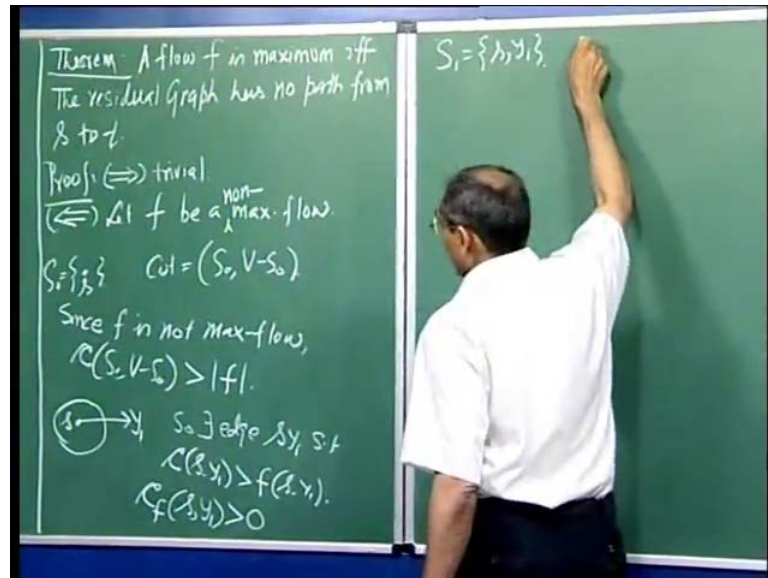 Theorem: A flow f in maximum iff
The residual Graph has no path from
s to t.
Proof: (⇒) trivial.
(⇐) Let f be a non-max-flow.
S₀={s} Cut = (S₀, V-S₀)
Since f in not max-flow,
C(S₀, V-S₀) > |f|.
s → y₁ So ∃ edge sy₁ s.t
C(s,y₁) > f(s,y₁).
C_f(s,y₁) > 0
S₁ = {s, y₁}.